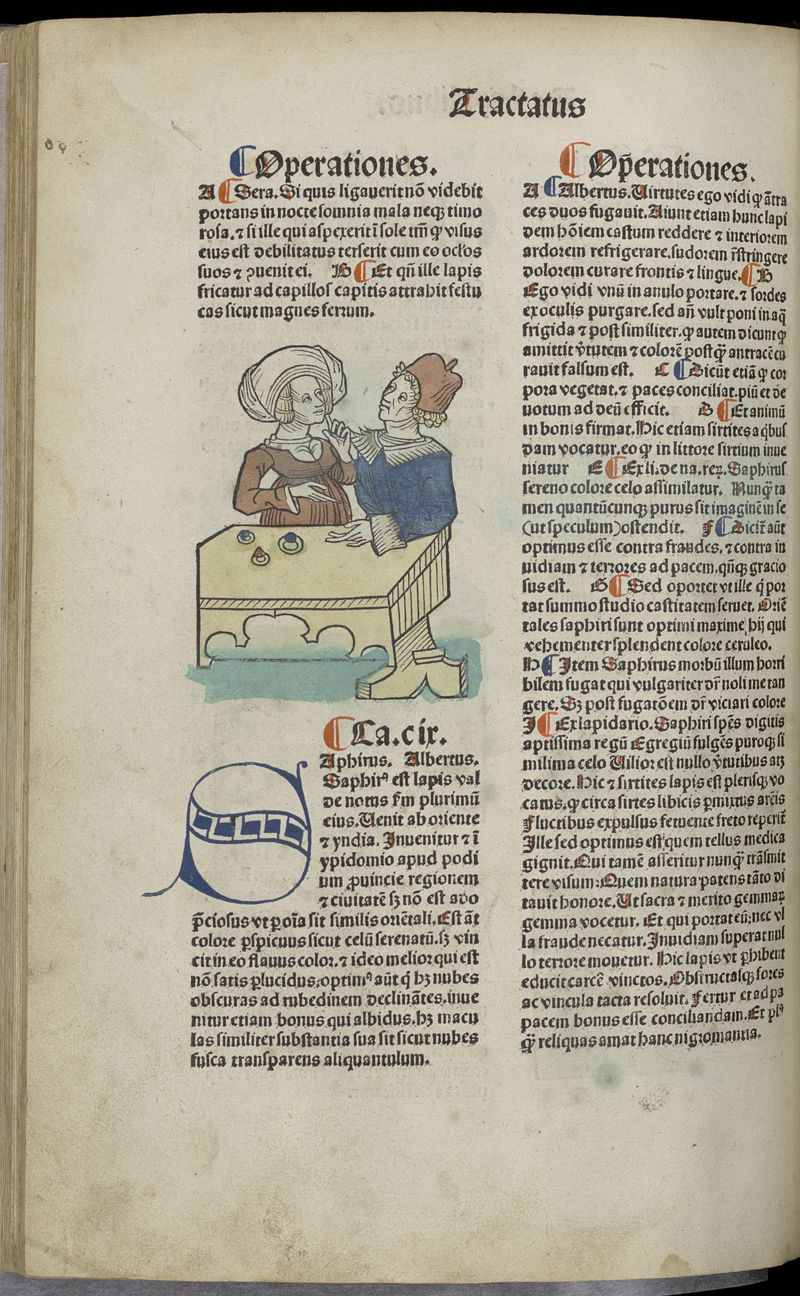 Tractatus
Operationes.
A Sera. Si quis ligauerit nō videbit
portans in nocte somnia mala neqʒ timo
rosa. ⁊ si ille qui aspexerit ī sole tm̄ ꝙ visus
eius est debilitatus terserit cum eo oc̄los
suos ⁊ ꝓuenit ei. B Et qn̄ ille lapis
fricatur ad capillos capitis attrahit festu
cas sicut magnes ferrum.
Ca. cix.
Aphirus. Albertus.
Saphirꝰ est lapis val
de notus ẜm plurimū
eius. Uenit ab oriente
⁊ yndia. Inuenitur ⁊ ī
ypidomio apud podi
um ꝓuincie regionem
⁊ ciuitatē sʒ nō est adō
p̄ciosus vt ꝑ oīa sit similis oriētali. Est āt
colore ꝑspicuus sicut celū serenatū. sʒ vin
cit in eo flauus color. ⁊ ideo melior qui est
nō satis ꝑlucidus. optimꝰ aūt q̄ hʒ nubes
obscuras ad rubedinem declinātes. inue
nitur etiam bonus qui albidus. hʒ macu
las similiter substantia sua sit sicut nubes
fusca transparens aliquantulum.
Op̄erationes.
A Albertus. Uirtutes ego vidi ꝙ ātra
ces duos fugauit. Aiunt etiam hunc lapi
dem hōiem castum reddere ⁊ interiorem
ardorem refrigerare. sudorem r̄stringere
dolorem curare frontis ⁊ lingue. B
Ego vidi vnū in anulo portare. ⁊ sordes
ex oculis purgare. sed an̄ vult poni in aq̄
frigida ⁊ post similiter. ꝙ autem dicunt ꝙ
amittit v̄tutem ⁊ colorē postꝙ̄ antracē cu
rauit falsum est. C Dicūt etiā ꝙ cor
pora vegetat. ⁊ paces conciliat. piū et de
uotum ad deū efficit. D Et animū
in bonis firmat. Hic etiam sirtites a q̄bus
dam vocatur. eo ꝙ in littore sirtium inue
niatur E Ex li. de na. reꝝ. Saphirus
sereno colore celo assimilatur. Nunꝙ̄ ta
men quantūcunqʒ purus sit imaginē in se
(ut speculum) ostendit. F Dicit̄ aūt
optimus esse contra fraudes. ⁊ contra in
uidiam ⁊ terrores ad pacem. qn̄qʒ gracio
sus est. G Sed oportet vt ille q̄ por
tat summo studio castitatem seruet. Oriē
tales saphiri sunt optimi maxime hij qui
vehementer splendent colore ceruleo.
H Item Saphirus morbū illum horri
bilem fugat qui vulgariter dr̄ noli me tan
gere. Sʒ post fugatōem dr̄ viciari colore
I Ex lapidario. Saphiri sp̄es digitis
aptissima regū Egregiū fulgēs puroqʒ si
milima celo Uilior est nullo v̄tutibus atqʒ
decore. Hic ⁊ sirtites lapis est plerisqʒ vo
catus. ꝙ circa sirtes libicis ꝑmixtus arēis
Fluctibus expulsus feruente freto reperit̄
Ille sed optimus est quem tellus medica
gignit. Qui tamē asseritur nunꝙ̄ trāsmit
tere visum: Quem natura potens tāto di
tauit honore. Ut sacra ⁊ merito gemmaꝝ
gemma vocetur. Et qui portat eū: nec vl
la fraude necatur. Inuidiam superat nul
lo terrore mouetur. Hic lapis vt ꝑhibent
educit carcē vinctos. Obstructasqʒ fores
ac vincula tacta resoluit. Fertur et ad pa
pacem bonus esse conciliandam. Et plꝰ
ꝙ̄ reliquas amat hanc nigromantia.